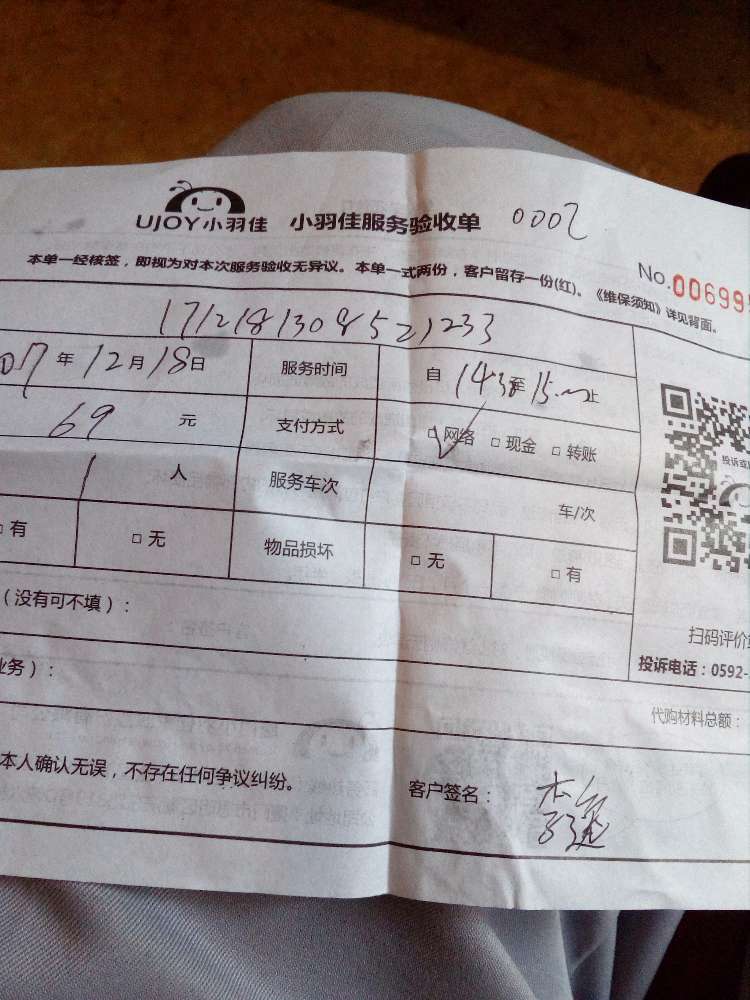 UJOY小羽佳 小羽佳服务验收单 0002
No.00699
本单一经核签，即视为对本次服务验收无异议。本单一式两份，客户留存一份(红)。《维保须知》详见背面。
1712181308521233
年12月18日 服务时间 自 止
69 元 支付方式 网络 现金 转账
1 人 服务车次 车/次
有 无 物品损坏 无 有
投诉或
扫码评价
(没有可不填)：
投诉电话：0592-
业务)：
代购材料总额：
本人确认无误，不存在任何争议纠纷。
客户签名：